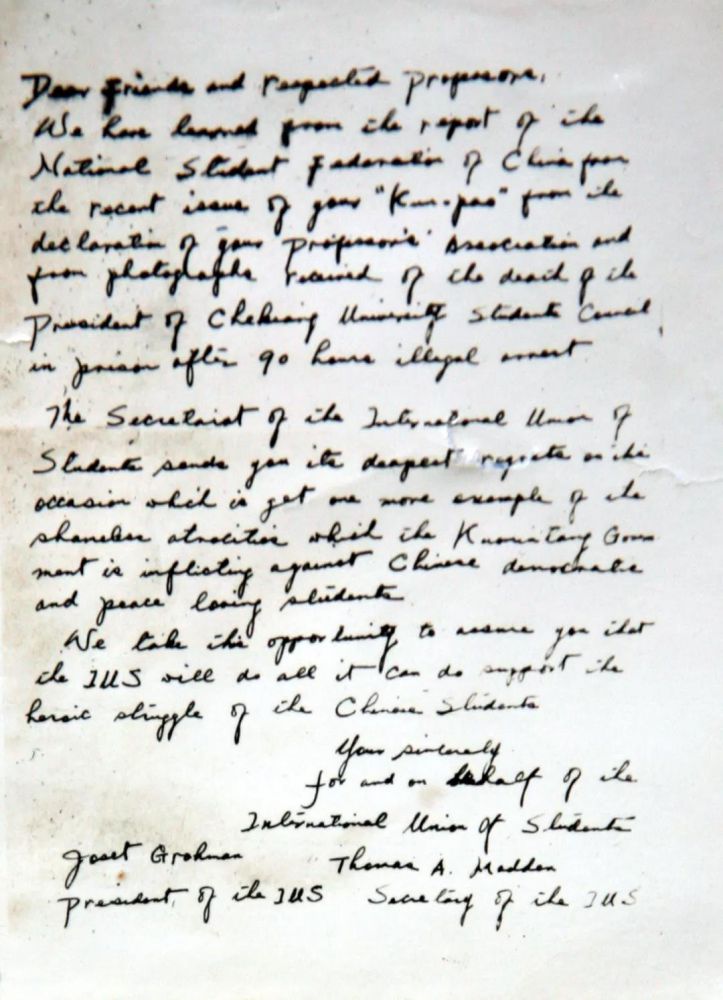 Dear friends and respected professors,
We have learned from the report of the
National Student Federation of China from
the recent issue of your "Kun-pao" from the
declaration of your Professors' Association and
from photographs received of the death of the
President of Chekiang University Students Council
in prison after 90 hours illegal arrest.
The Secretariat of the International Union of
Students sends you its deepest regrets on this
occasion which is yet one more example of the
shameless atrocities which the Kuomintang Govern
ment is inflicting against Chinese democratic
and peace loving students
We take this opportunity to assure you that
the IUS will do all it can do support the
heroic struggle of the Chinese Students
Your sincerely
for and on behalf of the
International Union of Students
Josef Grohman
Thomas A. Madden
president of the IUS
Secretary of the IUS